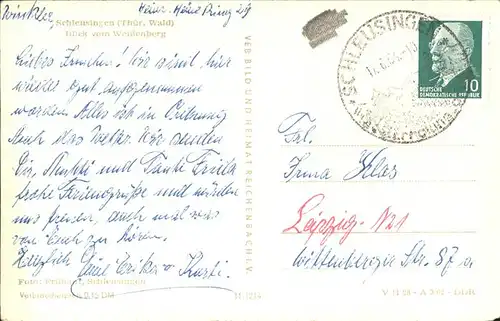 Schleusingen (Thür. Wald)
Blick vom Weidenberg
Liebes Irmchen! Wir sind hier
wieder gut aufgenommen
worden. Alles ist in Ordnung
Auch das Wetter. Wir senden
Dir, Mutti und Tante Frieda
frohe Feriengrüße und würden
uns freuen, auch mal was
von Euch zu hören.
Herzlich
Eure Erika u. Karli.
Foto:
Schleusingen
VEB BILD UND HEIMAT REICHENBACH i. V.
SCHLEUSINGEN
DEUTSCHE
DEMOKRATISCHE REPUBLIK
10
Frl.
Irma Klos
Leipzig - N21
Wittenberger Str. 87 a
DDR